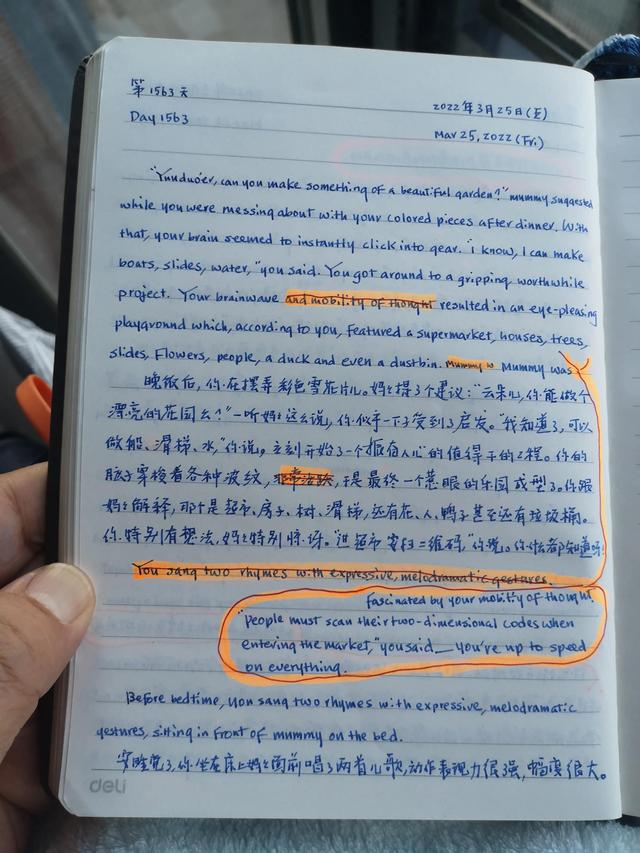 第1563天
2022年3月25日(五)
Day 1563
Mar 25, 2022 (Fri)
"Yunduo'er, can you make something of a beautiful garden?" mummy suggested
while you were messing about with your colored pieces after dinner. With
that, your brain seemed to instantly click into gear. "i know, I can make
boats, slides, water," you said. You got around to a gripping, worthwhile
project. Your brainwave and mobility of thought resulted in an eye-pleasing
playground which, according to you, featured a supermarket, houses, trees,
slides, Flowers, people, a duck and even a dustbin. Mummy w Mummy was
晚饭后,你在摆弄彩色雪花片儿。妈妈提了个建议:"云朵儿,你能做个
漂亮的花园么?"一听妈妈这么说,你似乎一下子受到了启发。"我知道了,可以
做船、滑梯、水,"你说。立刻开始了一个振奋人心的值得干的工程。你的
脑子穿梭着各种波纹,于是最终一个惹眼的乐园成型了。你跟
妈妈解释,那个是超市、房子、树、滑梯,还有花、人、鸭子甚至还有垃圾桶。
你特别有想法,妈妈特别惊讶。"进超市要扫二维码,"你说。你啥都知道呀!
You sang two rhymes with expressive, melodramatic gestures.
fascinated by your mobility of thought.
"people must scan their two-dimensional codes when
entering the market," you said__ you're up to speed
on everything.
Before bedtime, you sang two rhymes with expressive, melodramatic
gestures, sitting in front of mummy on the bed.
睡觉了,你坐在床上妈妈面前唱了两首儿歌,动作表现力很强,幅度很大。
deli